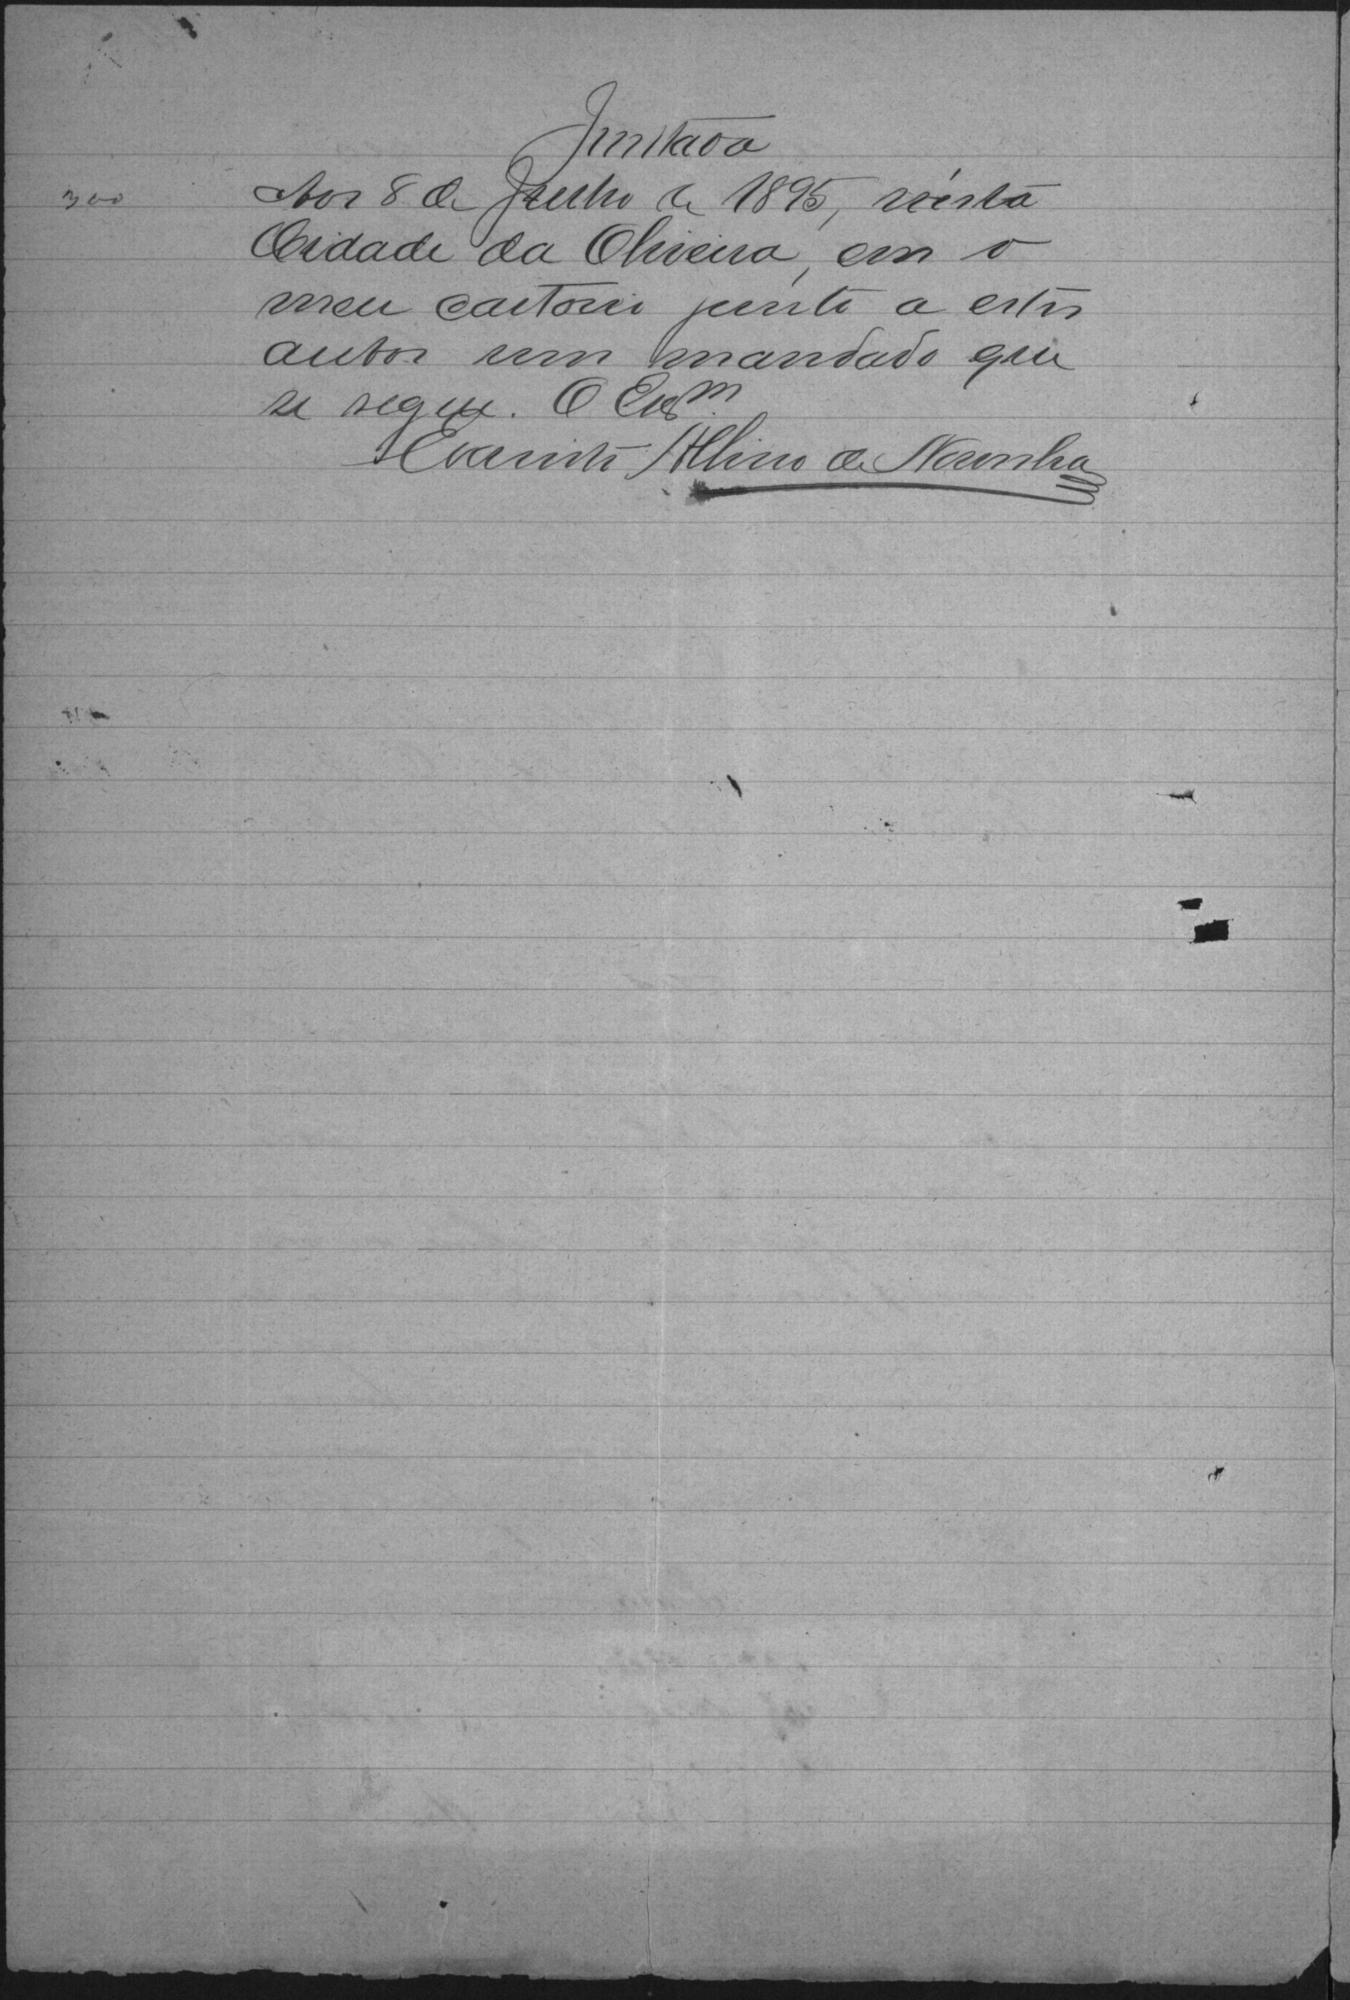 Juntada
300 Aos 8 de Julho de 1895, nesta
Cidade da Oliveira, em o
meu cartorio junto a estes
autos um mandado que
se segue. O Esc.m
Evaristo Albino de Noronha